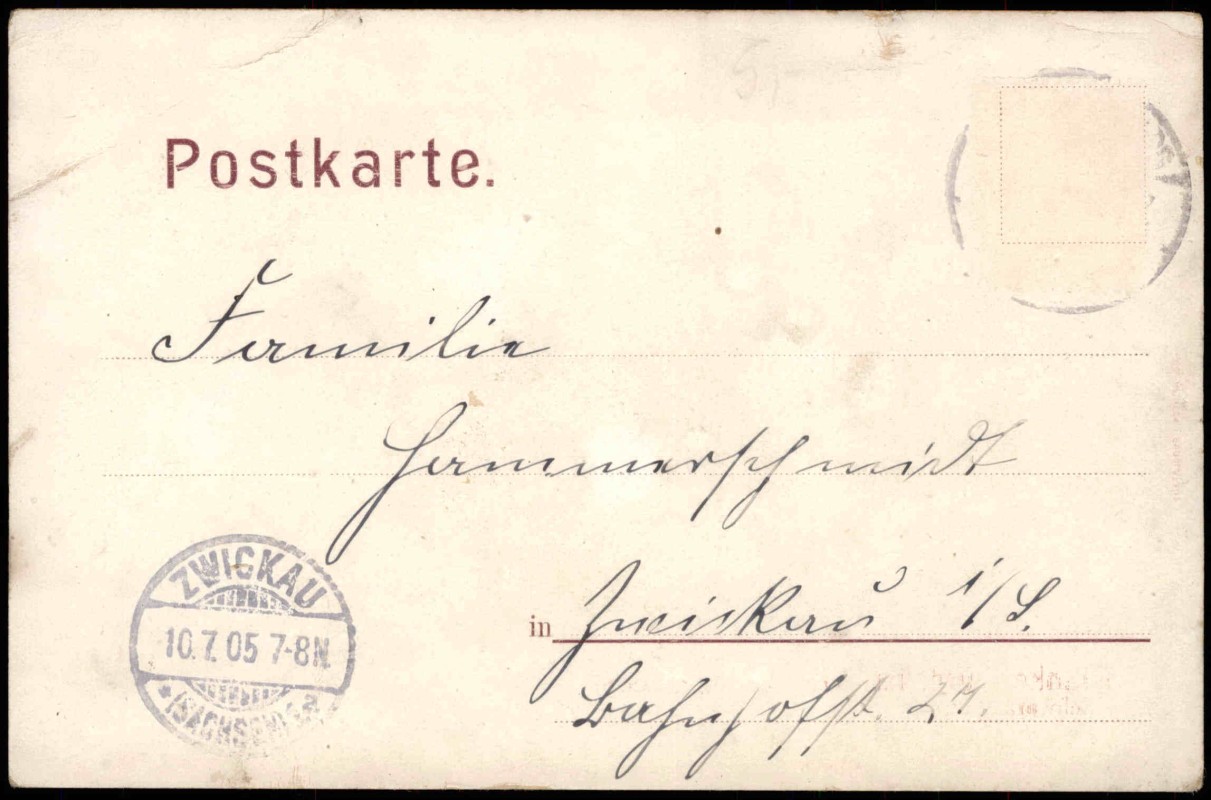 Postkarte.
Familie
Hammerschmidt
in Zwickau i/S.
Bahnhofst. 27.
ZWICKAU
10.7.05 7-8N.
(SACHSEN)